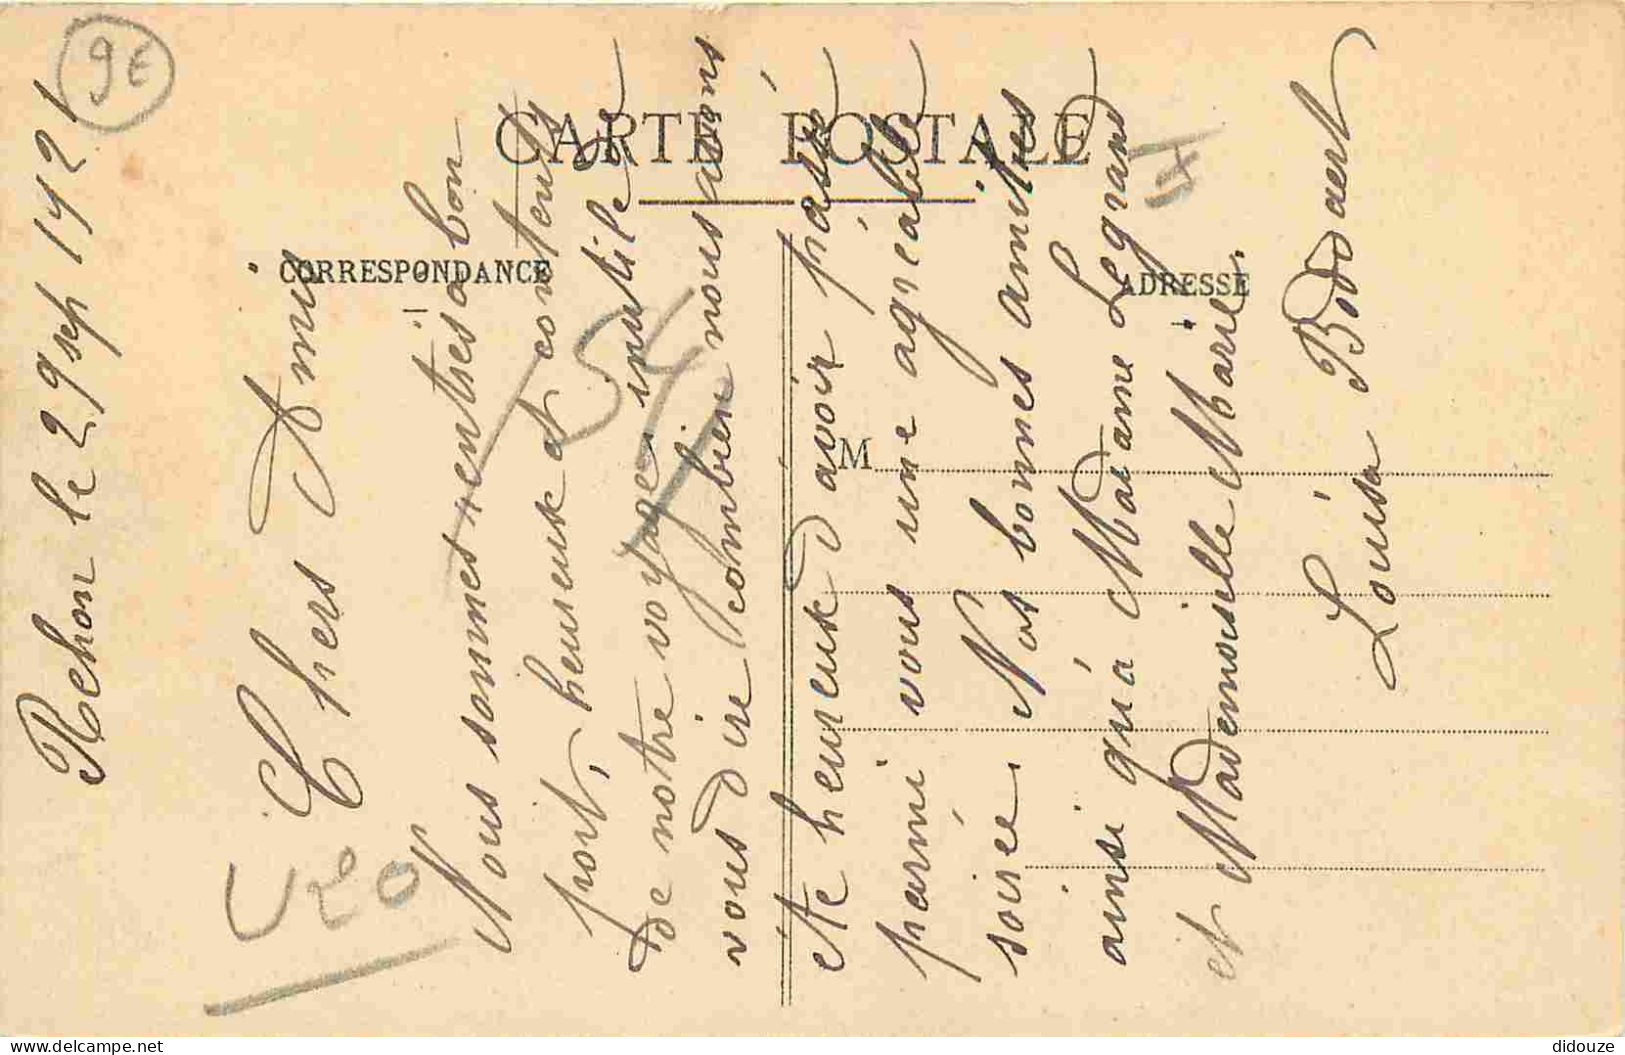 Rehon le 29 sep 1921
Chers Amis
Nous sommes rentrés à bon
port, heureux et contents
de notre voyage inutile de
vous dire combien nous avons
été heureux d'avoir passé
parmi vous une agréable
soirée. Nos bonnes amitiés
ainsi qu'à Madame Legrand
et Mademoiselle Marie.
Louisa Bodaert
CARTE POSTALE
CORRESPONDANCE
ADRESSE
M
9€
54
U20
didouze